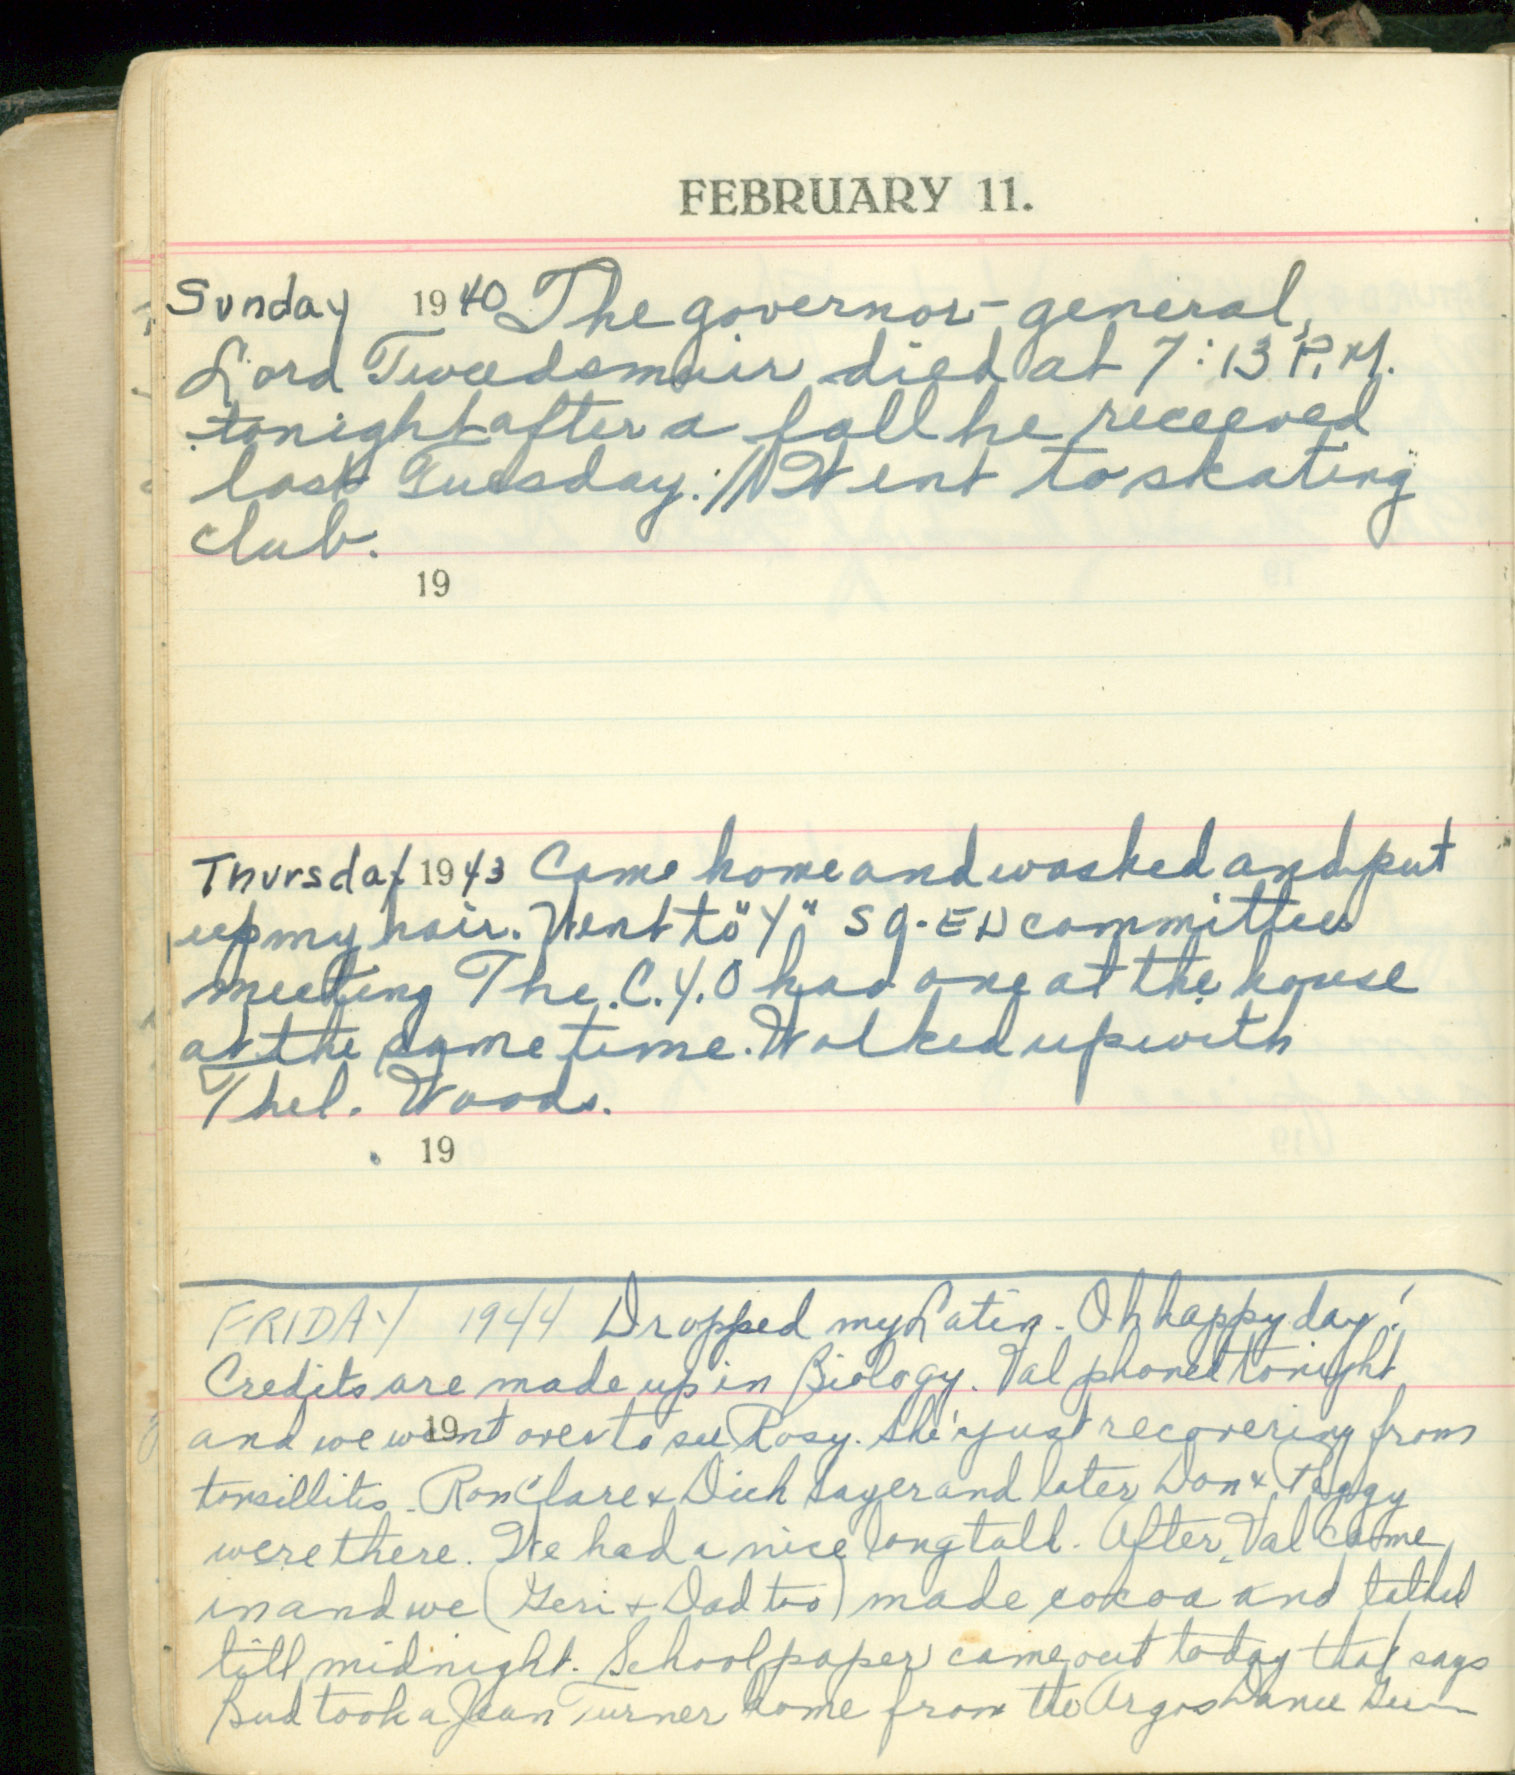 FEBRUARY 11.
Sunday 1940 The governor-general,
Lord Tweedsmuir died at 7:13 P.M.
tonight after a fall he received
last Tuesday. // Went to skating
club.
19
Thursday 1943 Came home and washed and put
up my hair. Went to "Y" committee
meeting The C.Y.O had one at the house
at the same time. Walked up with
Thel. Woods.
19
FRIDAY 1944 Dropped my Latin. Oh happy day!
Credits are made up in Biology. Val phoned tonight
19
and we went over to see Rosy. She's just recovering from
tonsillitis. Ron Clare & Dick Sayer and later Don & Peggy
were there. We had a nice long talk. After, Val came
in and we (Geri & Dad too) made cocoa and talked
till midnight. School paper came out today that says
Bud took a Jean Turner home from the Argos Dance